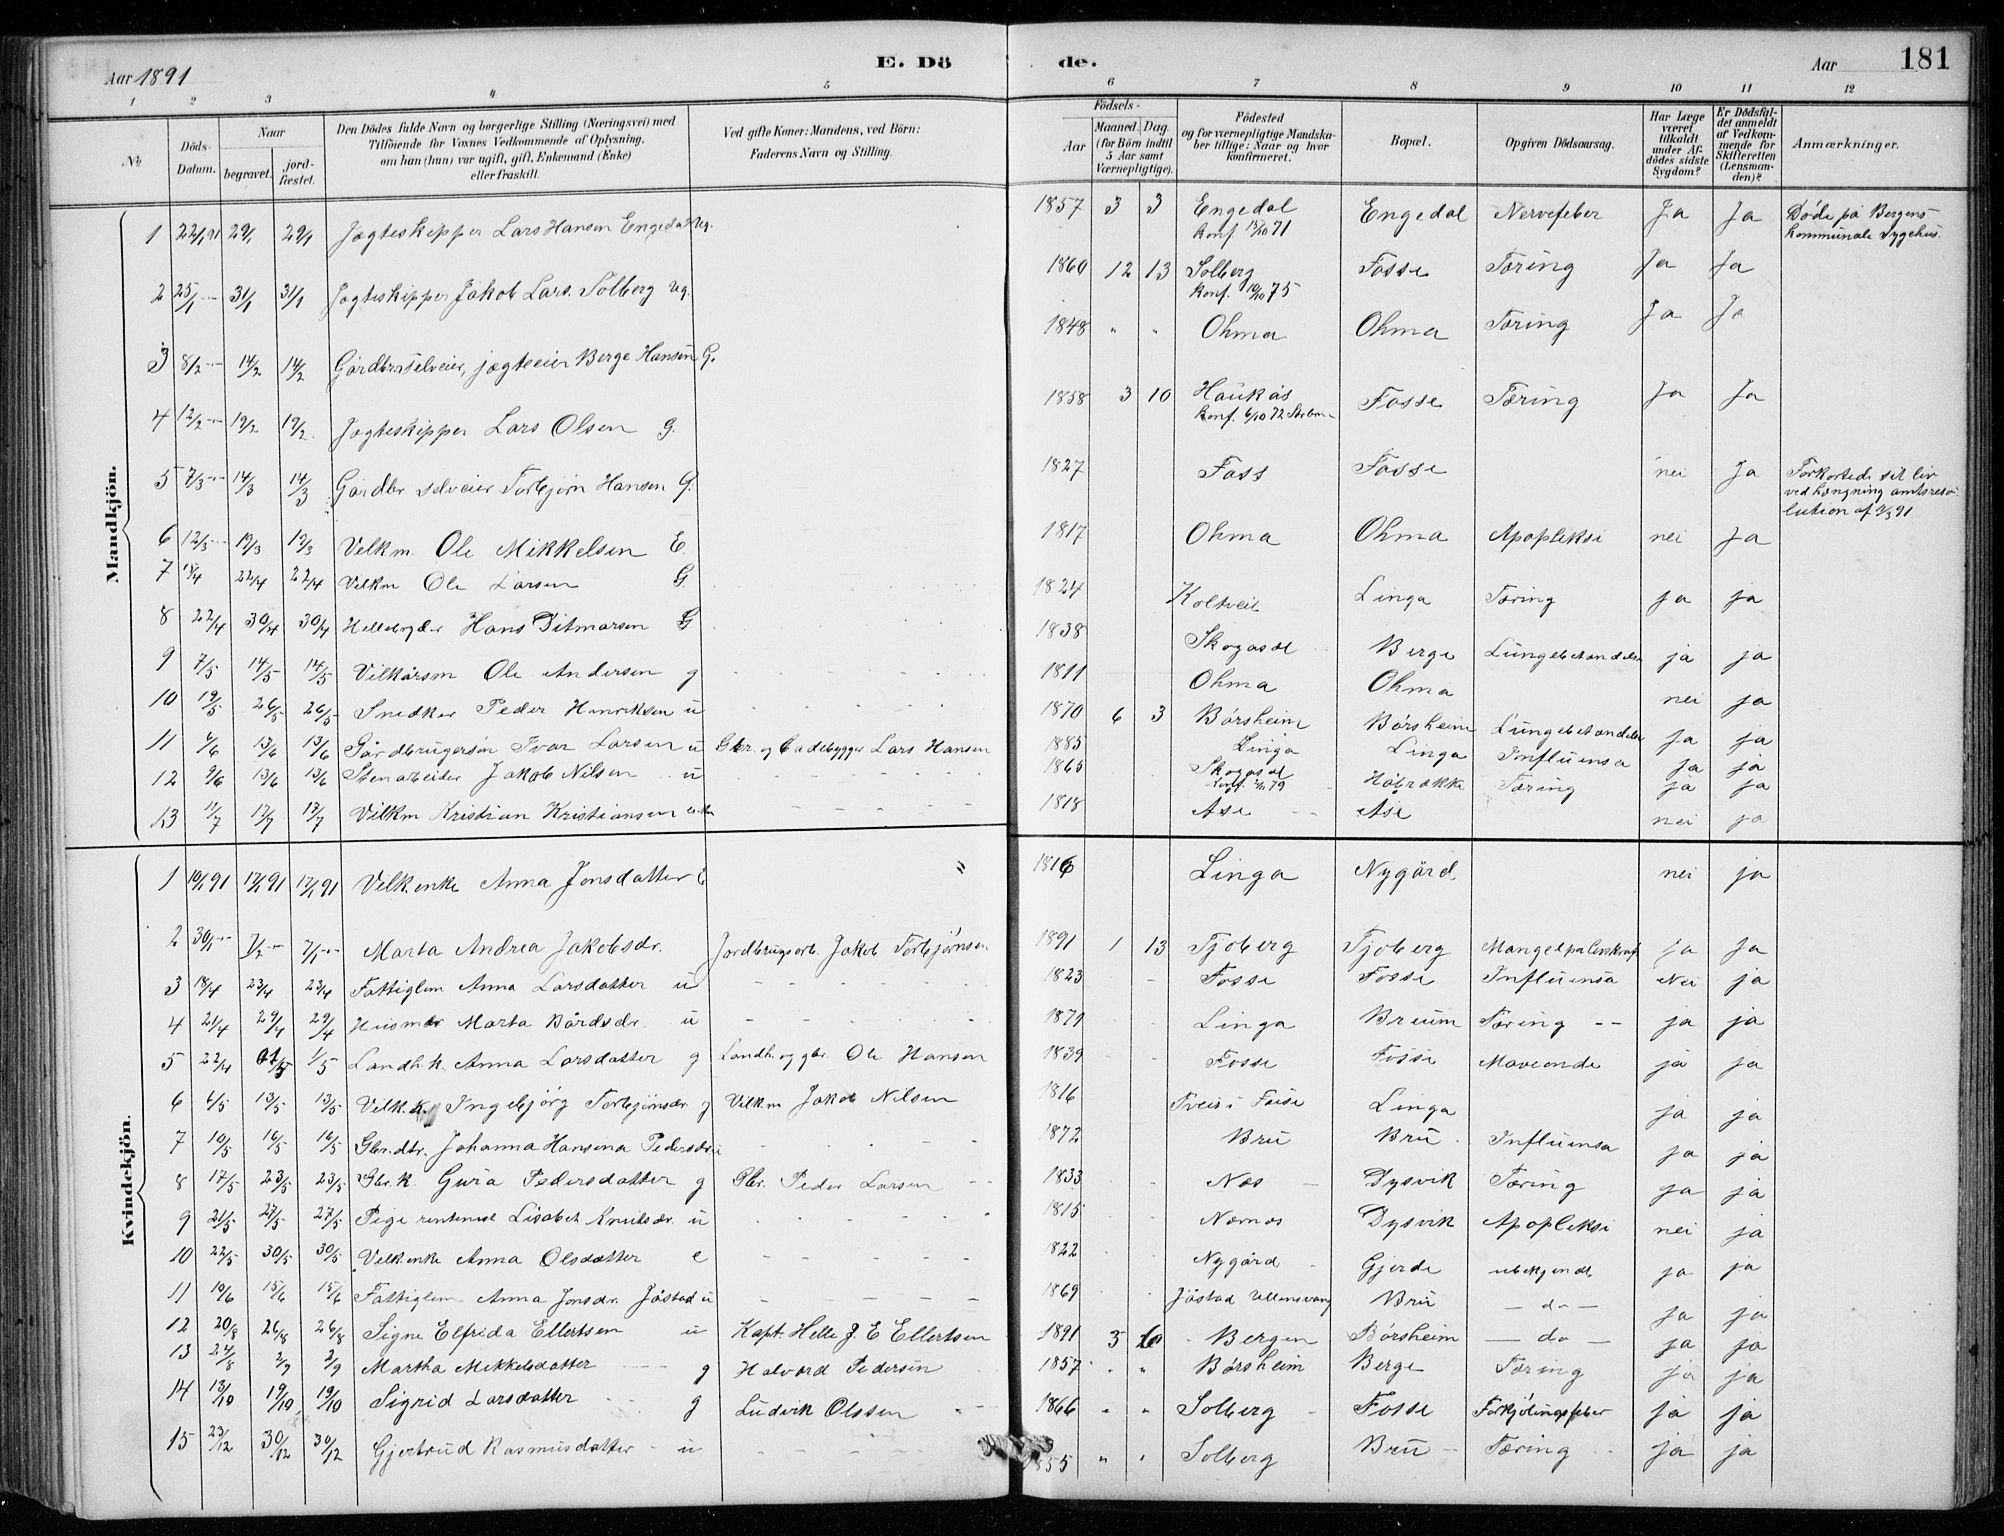 Aar 1891
E. Dö
de.
Aar
181
1 2 3 4 5 6 7 8 9 10 11 12
No
Döds-Datum.
Naar
begravet.
jord-fæstet.
Den Dödes fulde Navn og borgerlige Stilling (Næringsvei) med
Tilföiende for Voxnes Vedkommende af Oplysning,
om han (hun) var ugift, gift, Enkemand (Enke)
eller fraskilt.
Ved gifte Koner: Mandens, ved Börn:
Faderens Navn og Stilling.
Födsels-
Aar
Maaned. Dag.
(for Börn indtil
5 Aar samt
Værnepligtige).
Födested
og for værnepligtige Mandska-
ber tillige: Naar og hvor
konfirmeret.
Bopæl.
Opgiven Dödsaarsag.
Har Læge
været
tilkaldt
under Af-
dödes sidste
Sygdom?
Er Dödsfal-
det anmeldt
af Vedkom-
mende for
Skifteretten
(Lensman-
den)?
Anmærkninger.
Mandkjön.
1 22/1 91 29/1 29/1 Jægteskipper Lars Hansen Engedal Ug. 1857 3 3 Engedal Engedal Nervefeber Ja Ja Døde på Bergens
konf 15/10 71 kommunale Sygehus.
2 25/1 31/1 31/1 Jagteskipper Jakob Lars. Solberg Ug. 1860 12 13 Solberg Fosse Tæring Ja Ja
konf. 10/10 75
3 8/2 14/2 14/2 Gårdbr. selveier, jægteeier Berge Hansen G. 1848 " " Ohma Ohma Tæring Ja Ja
4 12/2 19/2 19/2 Jagteskipper Lars Olsen G. 1858 3 10 Haukås Fosse Tæring Ja Ja
konf. 6/10 72
5 7/3 14/3 14/3 Gårdbr selveier Torbjørn Hansen G. 1827 Foss Fosse nei Ja Forkortede sit liv
ved hængning amtsreso-
lution af 9/3 91
6 12/3 19/3 19/3 Velkm. Ole Mikkelsen E. 1817 Ohma Ohma Apopleksi nei Ja
7 15/4 22/4 22/4 Vilkm Ole Larsen G. 1824 Koltveit Linga Tæring ja ja
8 22/4 30/4 30/4 Hans Ditmarsen G 1838 Skogasel Berge Lungebetændelse ja ja
9 7/5 14/5 14/5 Vilkårsm Ole Andersen g 1811 Ohma Ohma nei ja
10 19/5 26/5 26/5 Snedker Peder Henriksen u 1870 6 3 Børsheim Børsheim Lungebetændelse ja ja
11 6/6 13/6 13/6 Gårdbrugersøn Ivar Larsen u Gbr. og Baadebygger Lars Hansen 1885 Linga Linga Influensa ja ja
12 9/6 13/6 13/6 Stenarbeider Jakob Nilsen u 1865 Skogasel Håbrække Tæring ja ja
13 11/7 17/7 17/7 Vilkm Kristian Kristiansen 1818 Ase Ase nei ja
Kvindekjön.
1 10/1 91 17/1 91 17/1 91 Velk.enke Anna Jonsdatter E " 1816 Linga Nygård nei ja
2 30/1 7/2 7/1 Marta Andrea Jakobsdr. Jordbrugsarb. Jakob Torbjørnsen 1891 1 13 Tjoberg Tjoberg Mangel på livskraft ja Ja
3 18/4 23/4 23/4 Fattiglem Anna Larsdatter u 1823 Fosse Fosse Influensa Nei ja
4 21/4 29/4 29/4 Husmdr Marta Bårdsdr. u 1871 Linga Bruum Tæring ja ja
5 22/4 1/5 1/5 Landh.k. Anna Larsdatter g Landh. og gbr. Ole Hansen 1839 Fosse Fosse Maveonde ja ja
6 6/5 13/5 13/5 Vilk.k. Ingebjörg Torbjörnsdr. g Vilkm Jakob Nilsen 1816 Tveis i Fosse Linga ja ja
7 10/5 16/5 16/5 Gbr.dtr. Johanna Hansina Pedersdr. 1872 Bru Bru Influensa ja ja
8 17/5 23/5 23/5 Gbr.k. Guria Pedersdatter g Gbr. Peder Larsen 1833 Nes Dysvik Tæring ja ja
9 21/5 27/5 27/5 Pige rentenist Lisabet Knutsdr. u 1815 Nernes Dysvik Apopleksi nei ja
10 22/5 30/5 30/5 Velkenke Anna Olsdatter e 1822 Nygård Gjerde ubekjendt ja ja
11 10/6 15/6 15/6 Fattiglem Anna Jonsdr. Jåstad u 1869 Jåstad Ullensvang Bru — do — ja ja
12 20/8 26/8 26/8 Signe Elfrida Ellertsen u Kapt. Helle J. E Ellertsen 1891 5 Bergen Børsheim — do — ja ja
13 24/8 2/9 2/9 Martha Mikkelsdatter g Halvord Pedersen 1857 " " Børsheim Berge Tæring ja ja
14 13/10 19/10 19/10 Sigrid Larsdatter g Ludvik Olssen 1866 " " Solberg Fosse Forkjölingsfeber ja ja
15 23/12 30/12 30/12 Gjertrud Rasmusdatter u 1855 " " Solberg Bru Tæring ja ja